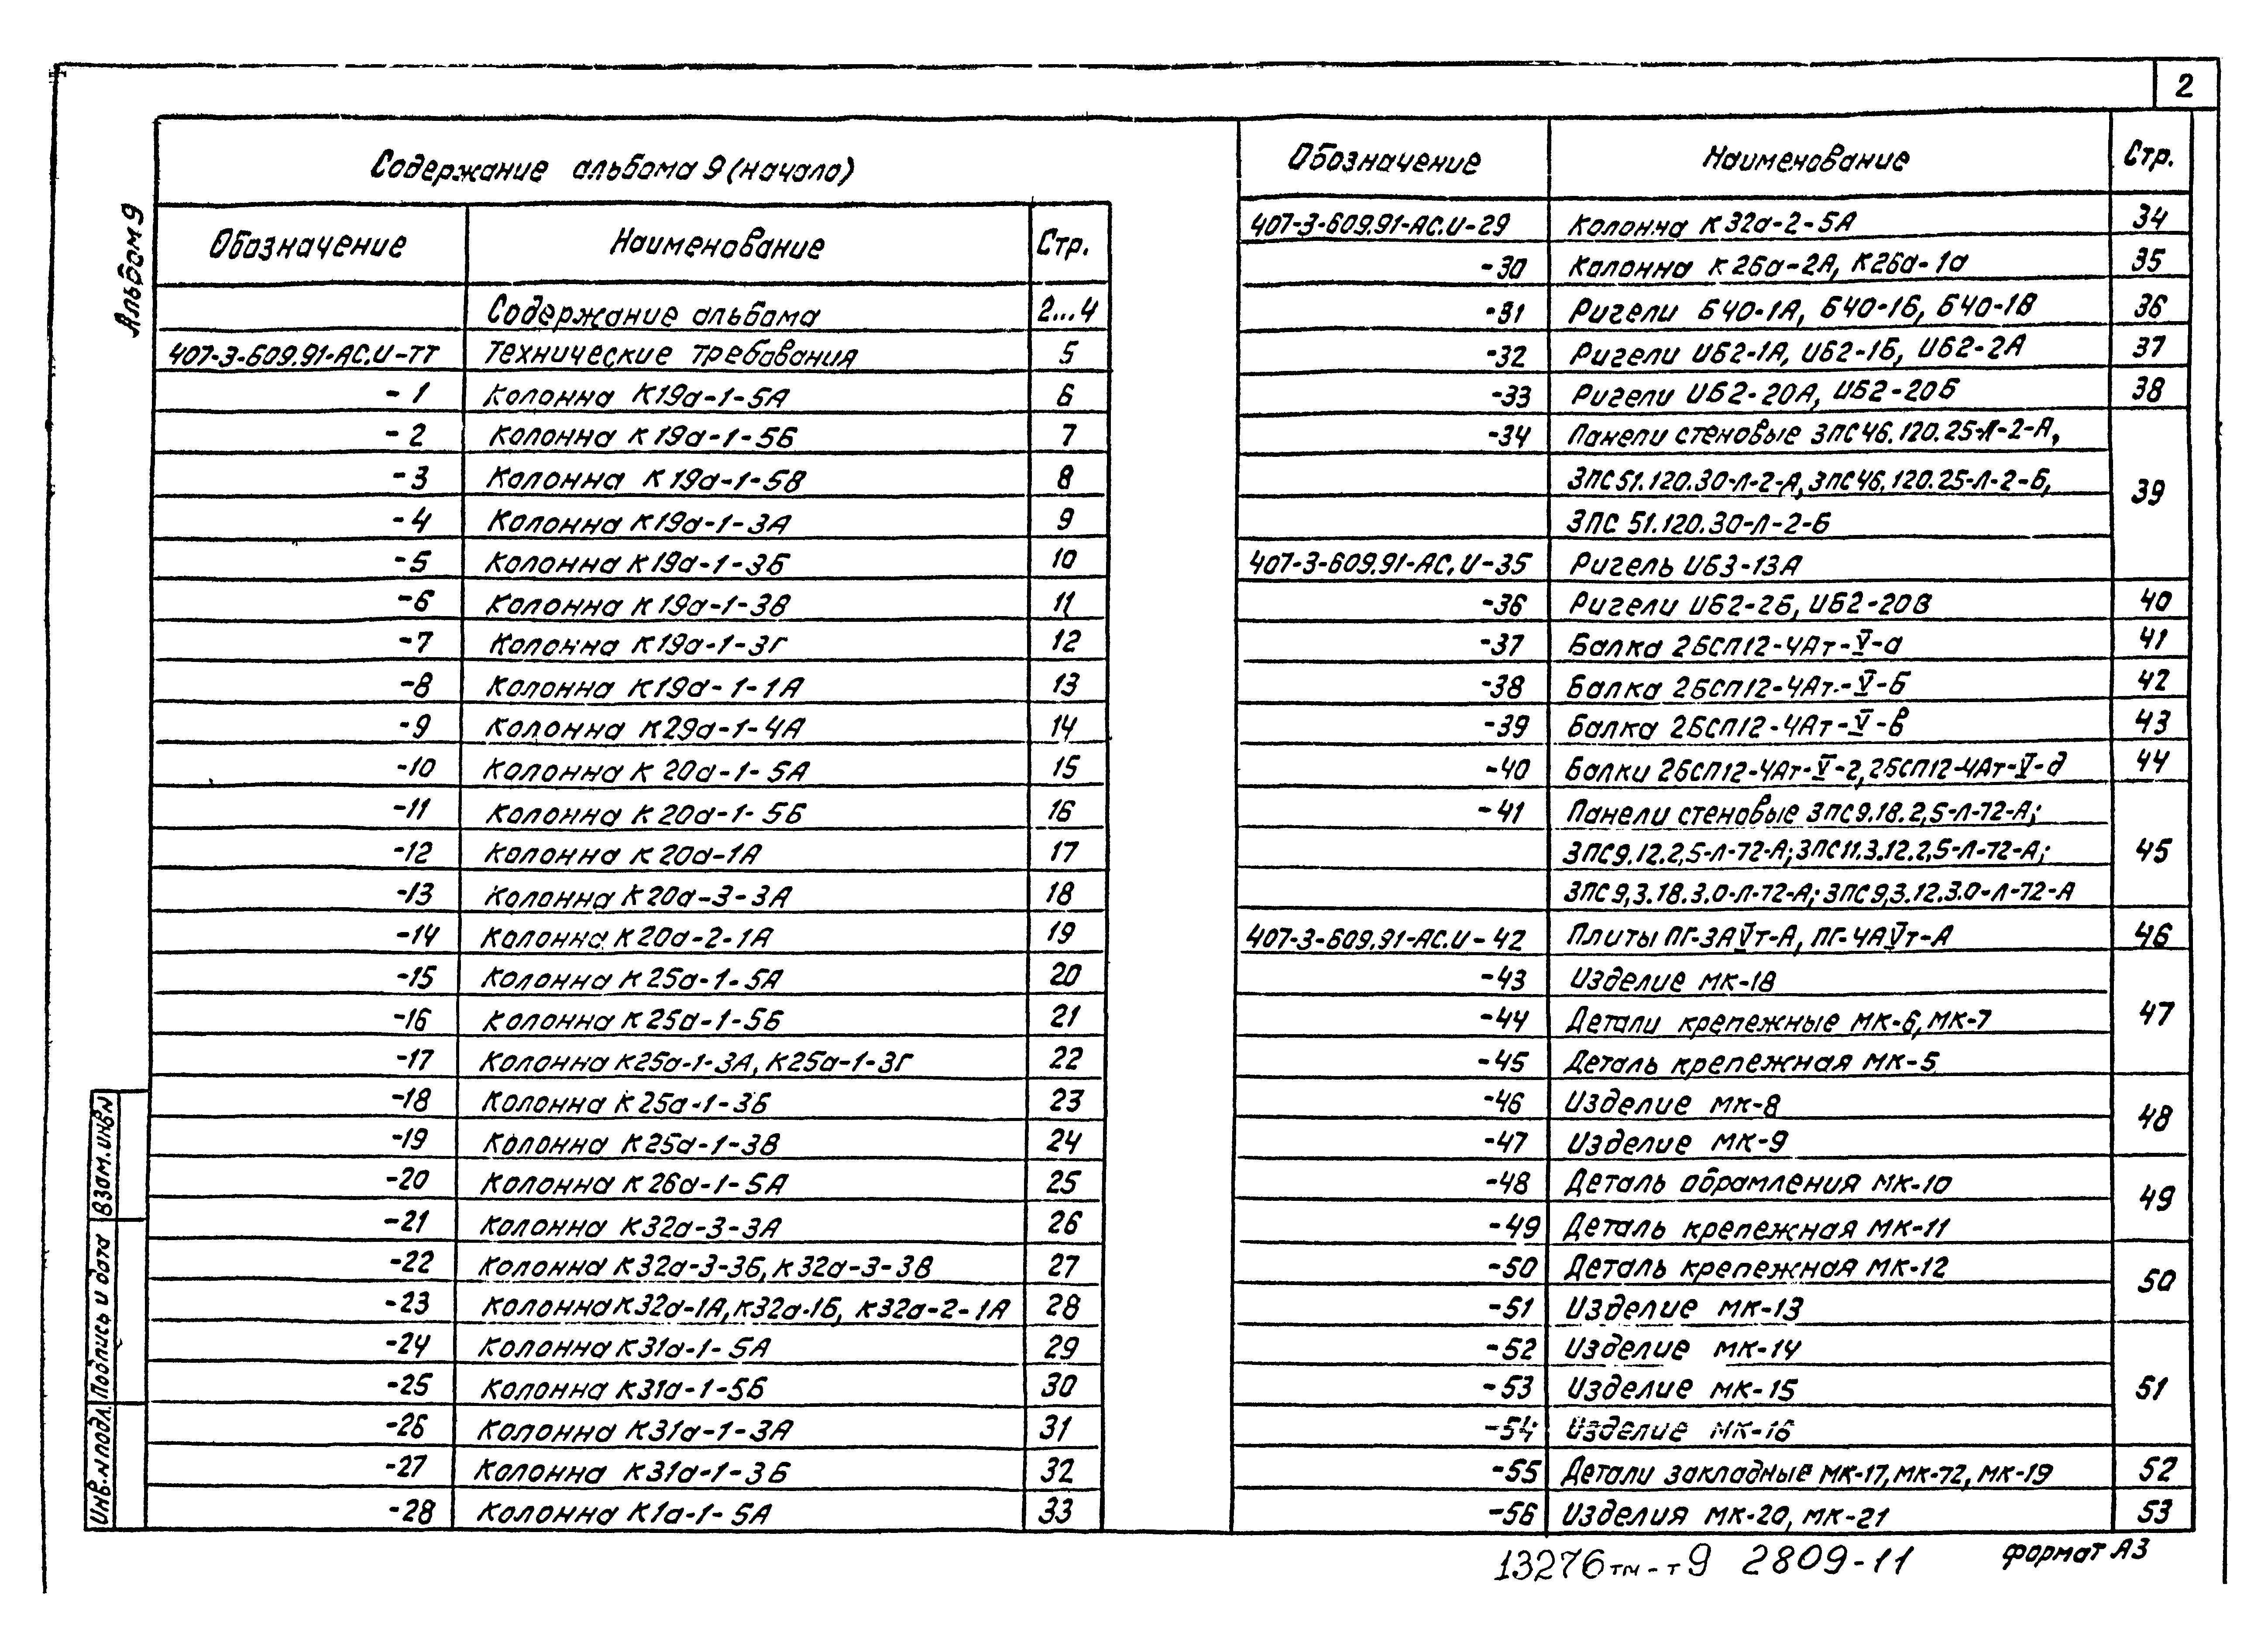 2
Альбом 9
Содержание альбома 9 (начало)
Обозначение Наименование Стр.
Содержание альбома 2...4
407-3-609.91-АС.И-ТТ Технические требования 5
-1 Колонна К19а-1-5А 6
-2 Колонна К19а-1-5Б 7
-3 Колонна К19а-1-5В 8
-4 Колонна К19а-1-3А 9
-5 Колонна К19а-1-3Б 10
-6 Колонна К19а-1-3В 11
-7 Колонна К19а-1-3Г 12
-8 Колонна К19а-1-1А 13
-9 Колонна К29а-1-4А 14
-10 Колонна К20а-1-5А 15
-11 Колонна К20а-1-5Б 16
-12 Колонна К20а-1А 17
-13 Колонна К20а-3-3А 18
-14 Колонна К20а-2-1А 19
-15 Колонна К25а-1-5А 20
-16 Колонна К25а-1-5Б 21
-17 Колонна К25а-1-3А, К25а-1-3Г 22
-18 Колонна К25а-1-3Б 23
-19 Колонна К25а-1-3В 24
-20 Колонна К26а-1-5А 25
-21 Колонна К32а-3-3А 26
-22 Колонна К32а-3-3Б, К32а-3-3В 27
-23 Колонна К32а-1А, К32а-1Б, К32а-2-1А 28
-24 Колонна К31а-1-5А 29
-25 Колонна К31а-1-5Б 30
-26 Колонна К31а-1-3А 31
-27 Колонна К31а-1-3Б 32
-28 Колонна К1а-1-5А 33
Обозначение Наименование Стр.
407-3-609.91-АС.И-29 Колонна К32а-2-5А 34
-30 Колонна К26а-2А, К26а-1а 35
-31 Ригели Б40-1А, Б40-1Б, Б40-1В 36
-32 Ригели ИБ2-1А, ИБ2-1Б, ИБ2-2А 37
-33 Ригели ИБ2-20А, ИБ2-20Б 38
-34 Панели стеновые 3ПС46.120.25-Л-2-А,
3ПС51.120.30-Л-2-А, 3ПС46.120.25-Л-2-Б, 39
3ПС51.120.30-Л-2-Б
407-3-609.91-АС.И-35 Ригель ИБ3-13А
-36 Ригели ИБ2-2Б, ИБ2-20В 40
-37 Балка 2БСП12-4Ат-V-а 41
-38 Балка 2БСП12-4Ат.-V-Б 42
-39 Балка 2БСП12-4Ат-V-в 43
-40 Балки 2БСП12-4Ат-V-г, 2БСП12-4Ат-V-д 44
-41 Панели стеновые 3ПС9.18.2,5-Л-72-А;
3ПС9.12.2,5-Л-72-А; 3ПС11.3.12.2,5-Л-72-А; 45
3ПС9,3.18.3.0-Л-72-А; 3ПС9,3.12.3.0-Л-72-А
407-3-609.91-АС.И-42 Плиты ПГ-3АVт-А, ПГ-4АVт-А 46
-43 Изделие МК-18
-44 Детали крепежные МК-6, МК-7 47
-45 Деталь крепежная МК-5
-46 Изделие МК-8 48
-47 Изделие МК-9
-48 Деталь обрамления МК-10 49
-49 Деталь крепежная МК-11
-50 Деталь крепежная МК-12 50
-51 Изделие МК-13
-52 Изделие МК-14
-53 Изделие МК-15 51
-54 Изделие МК-16
-55 Детали закладные МК-17, МК-72, МК-19 52
-56 Изделия МК-20, МК-21 53
Взам.инв№
Подпись и дата
Инв.№подл.
13276тм-т9 2809-11 формат А3